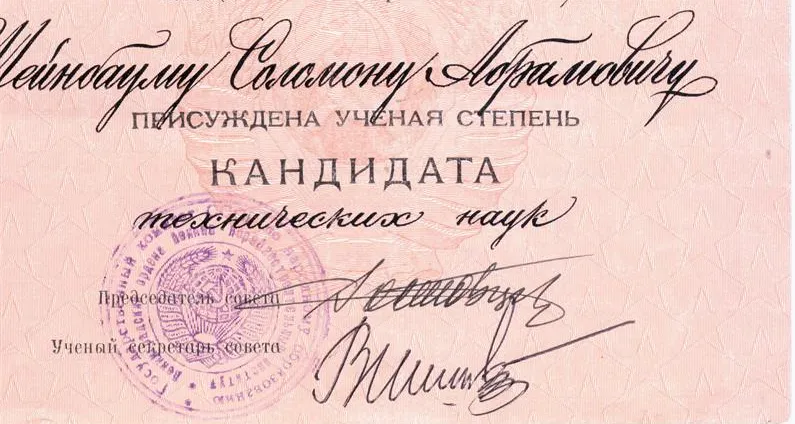 Шейнбауму Соломону Абрамовичу
ПРИСУЖДЕНА УЧЕНАЯ СТЕПЕНЬ
КАНДИДАТА
технических наук
Председатель совета
Ученый секретарь совета